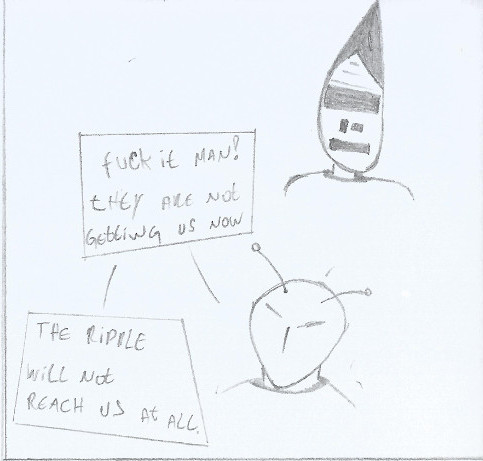 fUCK it MAN!
tHEY ARE Not
GEttiNG US NOW
THE RiPPLE
WiLL Not
REACH US At ALL.